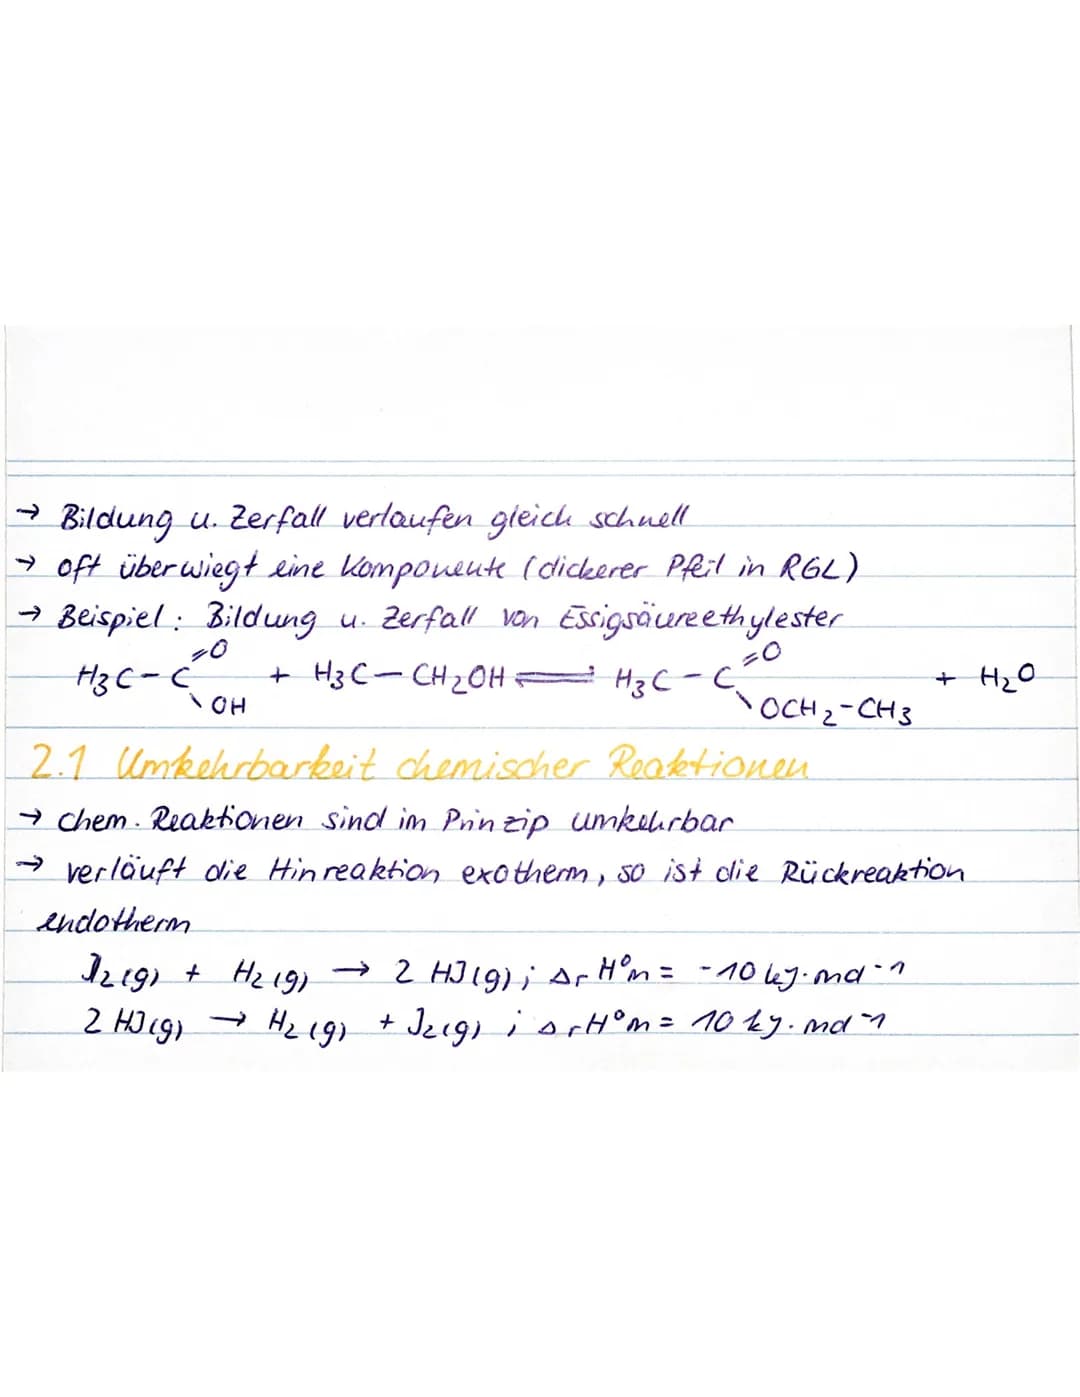 → Bildung u. Zerfall verlaufen gleich schnell
→ oft überwiegt eine Komponente (dickerer Pfeil in RGL)
→ Beispiel: Bildung u. Zerfall von Essigsäureethylester
H₃C-C=O\OH + H₃C-CH₂OH ⇌ H₃C-C=O\OCH₂-CH₃ + H₂O
2.1 Umkehrbarkeit chemischer Reaktionen
→ chem. Reaktionen sind im Prinzip umkehrbar
→ verläuft die Hinreaktion exotherm, so ist die Rückreaktion
endotherm
J₂(g) + H₂(g) → 2 HJ(g); ΔrH°m = -10 kJ·mol⁻¹
2 HJ(g) → H₂(g) + J₂(g); ΔrH°m = 10 kJ·mol⁻¹